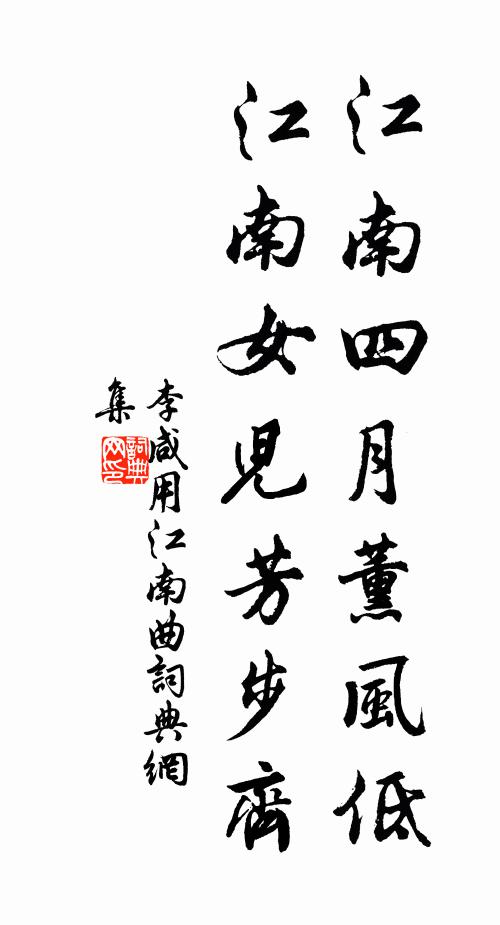 江南四月薰風低
江南女児芳步齊
李咸用江南曲詞典網
集
詞典網印